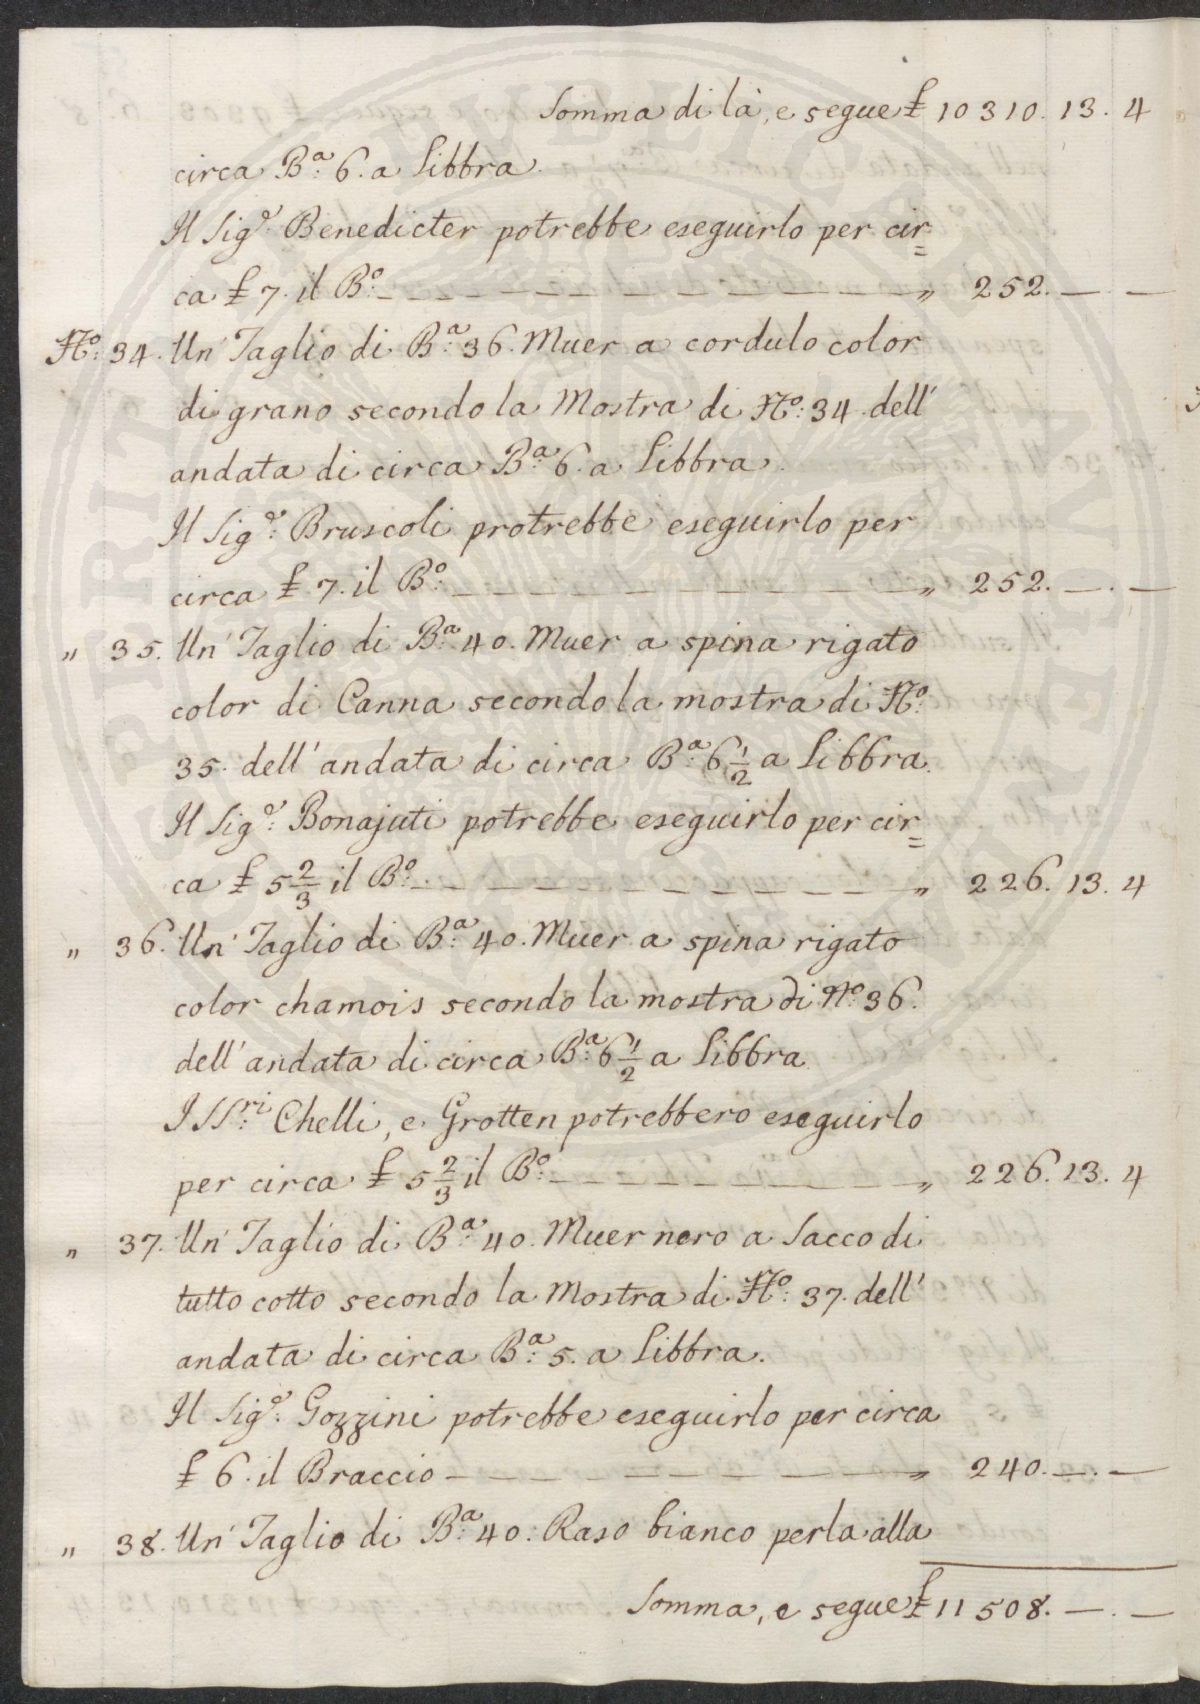 Somma di là, e segue £ 10310. 13. 4
circa B.ª 6. a Libbra.
Il Sig.e Benedicter potrebbe eseguirlo per cir=
ca £ 7. il B.º — — — — — — — — — „ 252. — —
N.º 34. Un' Taglio di B.ª 36. Muer a cordulo color
di grano secondo la Mostra di N.º 34. dell'
andata di circa B.ª 6. a Libbra.
Il Sig.e Bruscoli protrebbe eseguirlo per
circa £ 7. il B.º — — — — — — — — „ 252. — . —
„ 35. Un' Taglio di B.ª 40. Muer a spina rigato
color di Canna secondo la mostra di N.º
35. dell' andata di circa B.ª 6 1/2 a Libbra.
Il Sig.e Bonajuti potrebbe eseguirlo per cir=
ca £ 5 2/3 il B.º — — — — — — — — — „ 226. 13. 4
„ 36. Un' Taglio di B.ª 40. Muer a spina rigato
color chamois secondo la mostra di N.º 36.
dell' andata di circa B.ª 6 1/2 a Libbra
I SS.ri Chelli, e Grotten potrebbero eseguirlo
per circa £ 5 2/3 il B.º — — — — — — — „ 226. 13. 4
„ 37. Un' Taglio di B.ª 40. Muer nero a Sacco di
tutto cotto secondo la Mostra di N.º 37. dell'
andata di circa B.ª 5. a Libbra.
Il Sig.e Gozzini potrebbe eseguirlo per circa
£ 6. il Braccio — — — — — — — — „ 240. — . —
„ 38. Un' Taglio di B.ª 40. Raso bianco perla alla
Somma, e segue £ 11508. — . —